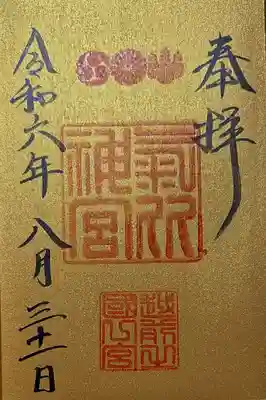 奉拝
氣比
神宮
越前之
國一宮
令和六年 八月三十一日